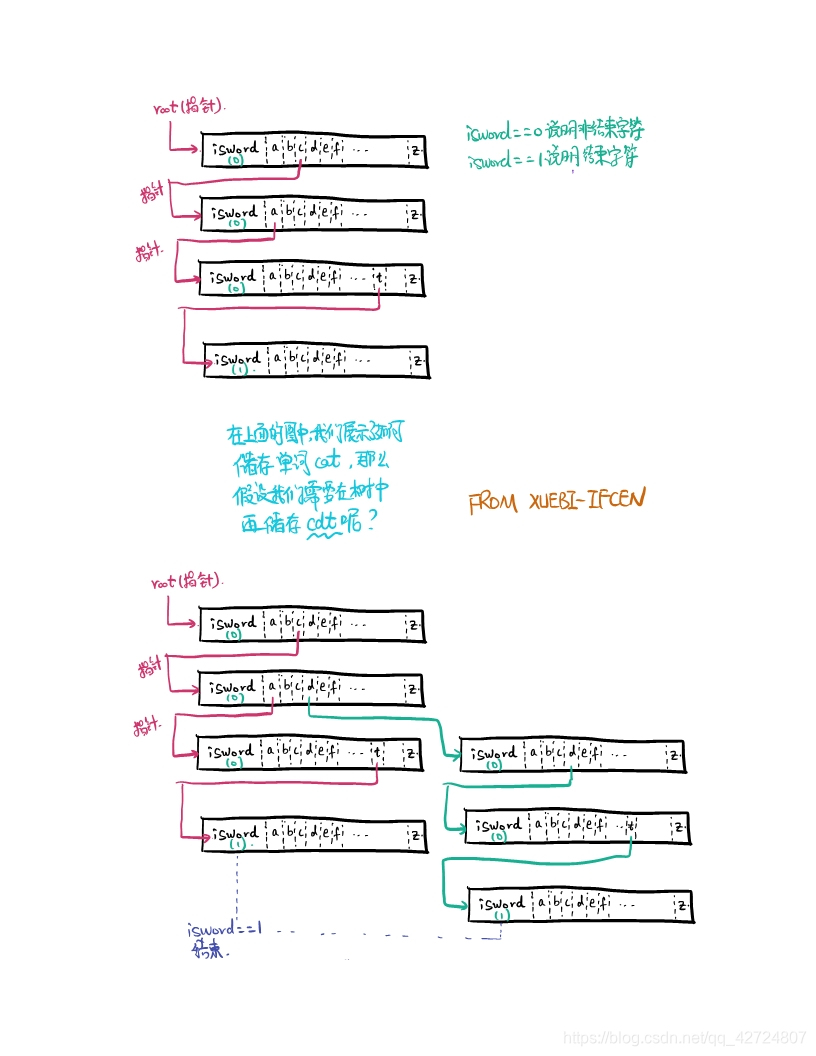 root(指针).
isword a b c d e f ... z.
(0)
isword==0 说明非结束字符
isword==1 说明结束字符
指针
isword a b c d e f ... z.
(0)
指针.
isword a b c d e f ... t z.
(0)
isword a b c d e f ... z.
(1).
在上面的图中,我们展示了如何
储存单词 cat,那么
假设我们需要在树中
再储存 cdt 呢?
FROM XUEBI-IFCEN
root(指针).
isword a b c d e f ... z.
(0)
指针
isword a b c d e f ... z.
(0)
指针.
isword a b c d e f ... t z.
(0)
isword a b c d e f ... z.
(0)
isword a b c d e f ... z.
(1).
isword a b c d e f ... t z.
(0)
isword a b c d e f ... z.
(1)
isword==1
结束.
https://blog.csdn.net/qq_42724807